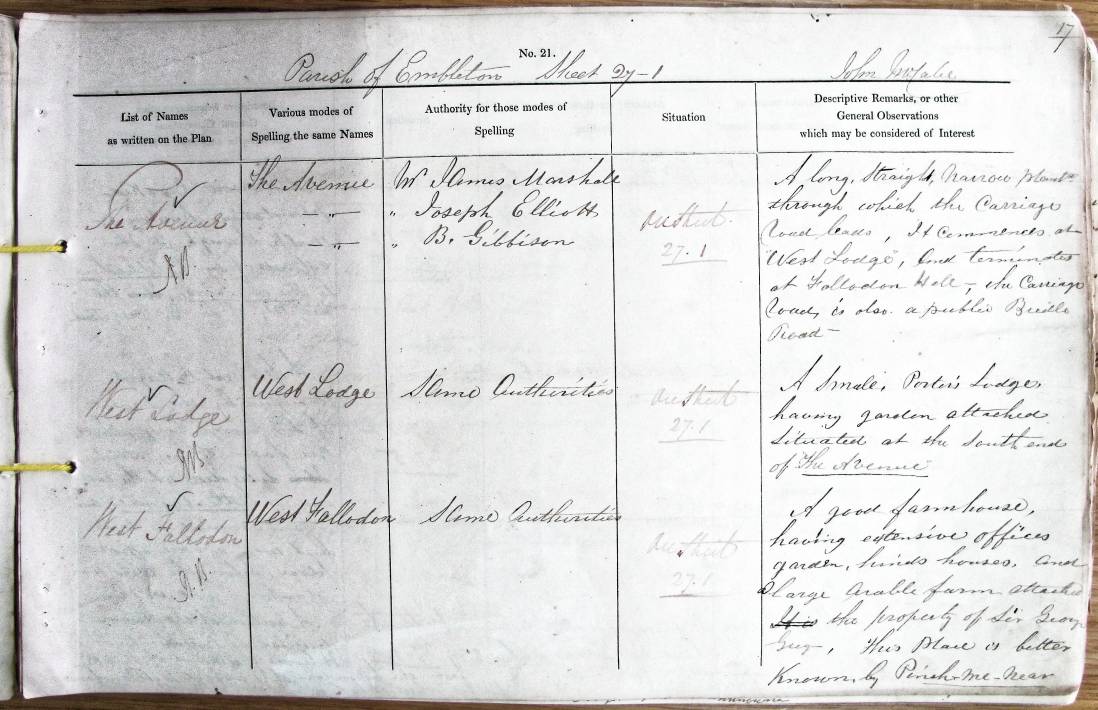 17
No. 21.
Parish of Embleton Sheet 27-1
John
List of Names
as written on the Plan
Various modes of
Spelling the same Names
Authority for those modes of
Spelling
Situation
Descriptive Remarks, or other
General Observations
which may be considered of Interest
The Avenue
The Avenue
— „ —
— „ —
W James Marshall
„ Joseph Elliott
„ B. Gibbison
On Sheet
27.1
A long, Straight, Narrow Plantn
through which the Carriage
Road leads, It Commences at
"West Lodge", and terminates
at Fallodon Hall -, the Carriage
Road, is also a public Bridle
Road -
West Lodge
West Lodge
Same Authorities
On Sheet
27.1
A Small, Porter's Lodge,
having garden attached
Situated at the South end
of "The Avenue"
West Fallodon
West Fallodon
Same Authorities
On Sheet
27.1
A good farmhouse,
having extensive offices
garden, hinds houses, and
a large Arable farm attached
It is the property of Sir George
Grey, This Place is better
Known, by Pinch-me-near